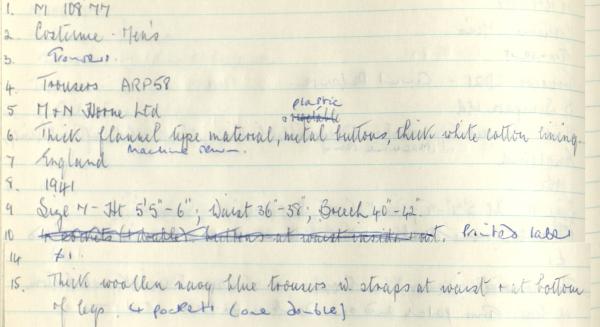 1. M 10877
2 Costume - Men's
3. Trousers.
4. Trousers ARP58
plastic
5 M+N Horne Ltd
6 Thick flannel type material, metal buttons, thick white cotton lining.
machine sewn.
7 England
8. 1941
9 Size 7 - Ht 5'5"-6"; Waist 36"-38"; Breech 40"-42"
10 4 pockets (1 double). buttons at waist inside + out. Printed label
14 £1.
15. Thick woollen navy blue trousers w. straps at waist + at bottom
of legs. 4 pockets (one double)